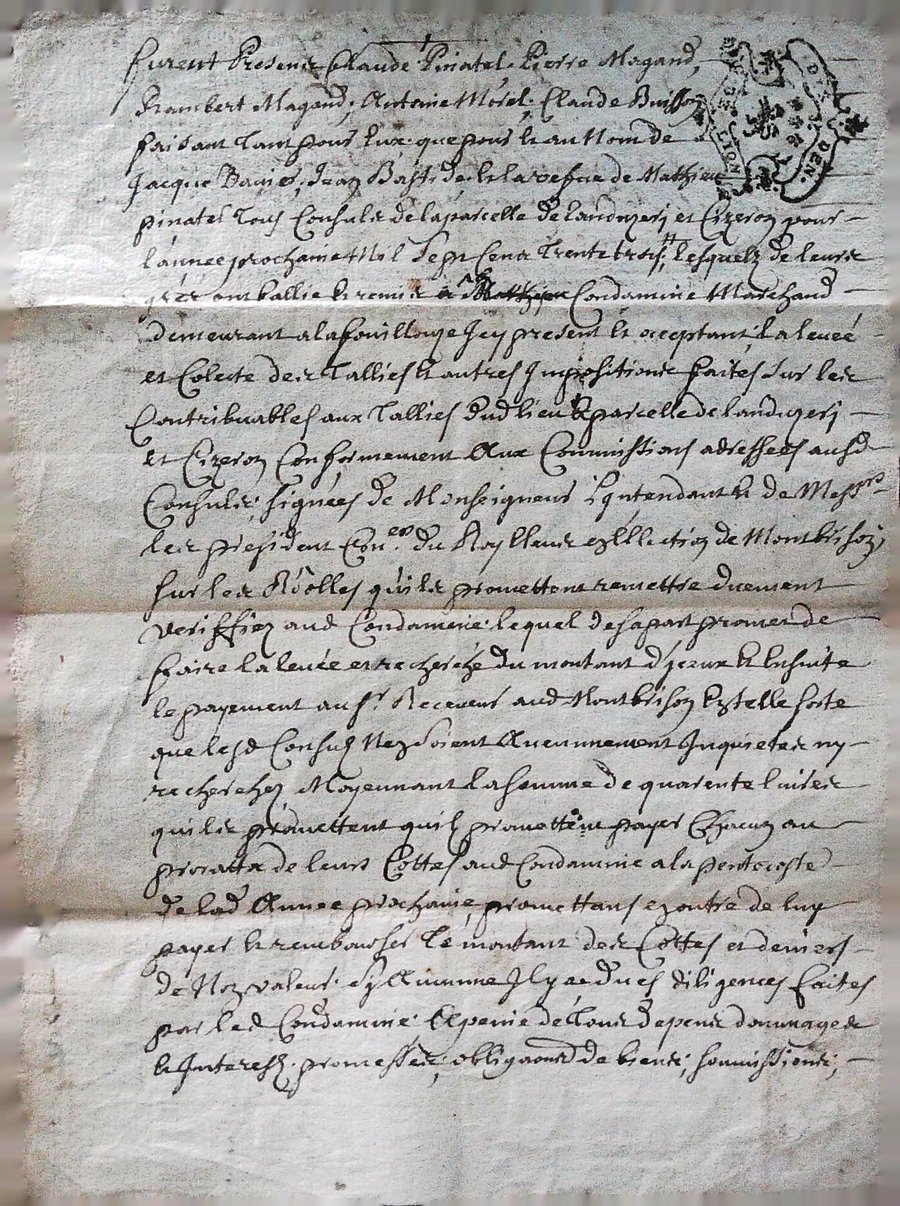 furent Presens Claude Pinatel, Pierre Magand,
Rambert Magand, Antoine Morel, Claude Buisson
faisant tant pour Eux que pour et au Nom de
Jacque Bavier, Jean Bapt. de la vefue de Mathieu
pinatel Tous Consuls de la parcelle de Landuzery et Cizeron pour
lannee prochaine Mil Sept Cens Trente trois, lesquels de leurs
grés ont ballié et remis a Condamine Marchand
demeurant a lafouillouze Icy present et acceptant la levée
et Colecte des Tallies et autres Impositions faites sur les
Contribuables aux Tallies dudlieu & parcelle de Landuzery
et Cizeron Conformement Aux Commissions adressées ausd
Consuls, signées de Monseigneur L'Intendant et de Messrs
les president Coner. du Roy Eleus en Lellection de Montbrison,
sur les Roolles quils promettent remettre duement
veriffiez aud Condamine lequel de sa part promet de
faire la levée et recherche du montant d'yceux et Ensuite
le payement au sr. Receveur aud Montbrison En telle sorte
que lesd Consuls Nen soient Aucunnement Inquietes ny
recherchez Moyennant la somme de quarente livres
quils promettent quils promettent payer Chacun au
proratta de leurs Cottes aud Condamine a la pentecoste
de lad Année prochaine, promettans en outre de luy
payer et rembourser Le montant des Cottes et deniers
de Non valeur sy Aucunne Il y a dues diligences faites
par led Condamine A penne de Tous depens dommages
et Interests, promesses, obligaons de biens, soumissions,